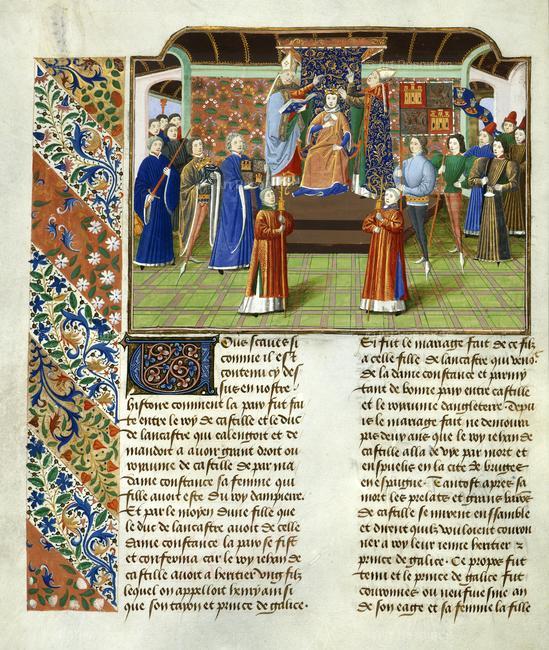 Vous scaues si
comme il est
contenu cy des
sus en nostre
histoire comment la paix fut fai
te entre le roy de castille et le duc
de lancastre qui calengoit et de
mandoit a auoir grant droit ou
royaume de castille de par ma
dame constance sa femme qui
fille auoit este du roy dampietre.
Et par le moyen dune fille que
le duc de lancastre auoit de celle
dame constance la paix se fist
et conferma car le roy iehan de
castille auoit a heritier vng filz
lequel on appelloit henry ainsi
que son tayon et prince de galice.
Si fut le mariage fait de ce filz
a celle fille de lancastre qui venoit
de la dame constance et parmy
tant de bonne paix entre castille
et le royaume dangleterre. Depuis
le mariage fait ne demoura
pas deux ans que le roy iehan de
castille alla de vye par mort et
en
en la cite de burges
en espaigne. Tantost apres sa
mort les prelats et grans barons
de castille se mirent ensamble
et dirent quilz vouloient couron
ner a roy leur ieune heritier
prince de galice. Ce propos fut
tenu et le prince de galice fut
couronne ou neufuiesme an
de son eage et sa femme la fille